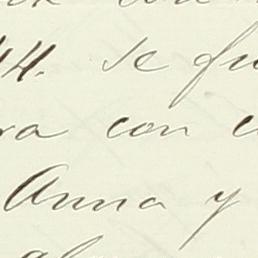 44. se fu
ra con e
Anna y